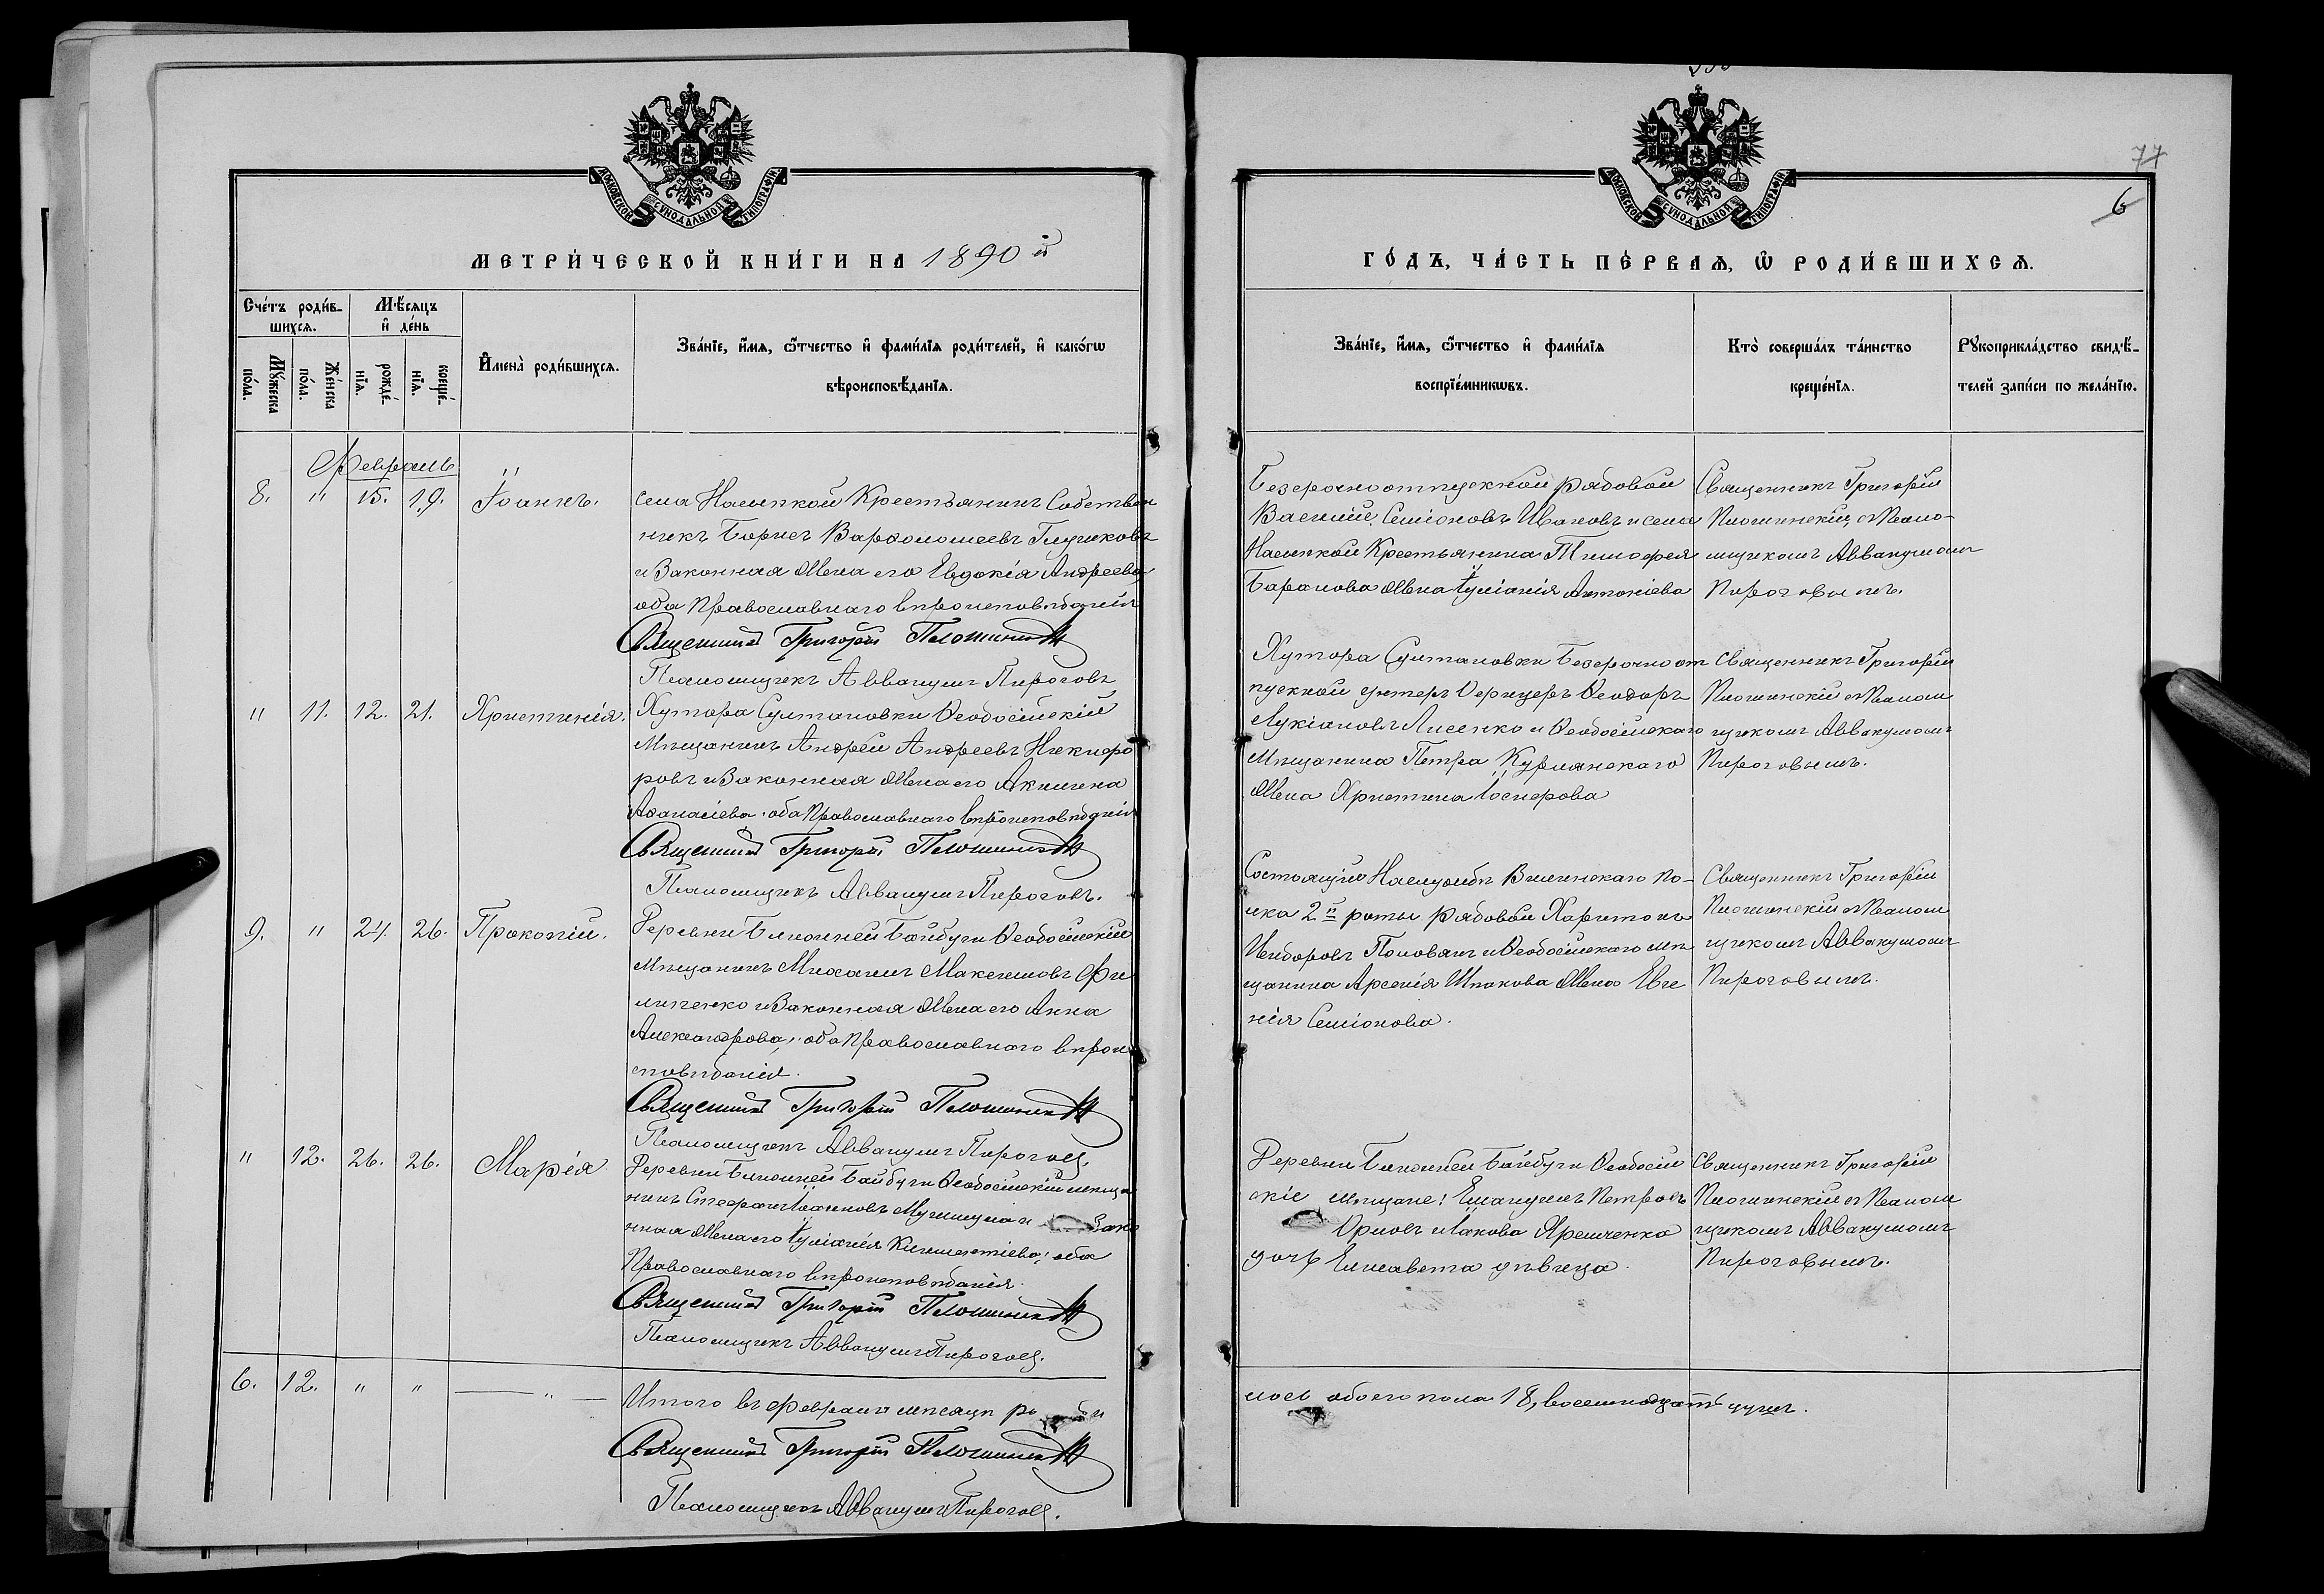 МЕТРИ́ЧЕСКОЙ КНИ́ГИ НА 1890 й
Сче́тъ роди́в-
шихсѧ.
Мѣ́сяцъ
и҆ де́нь
Му́жеска
по́ла.
Же́нска
по́ла.
рожде́-
нїѧ.
креще́-
нїѧ.
И҆мена̀ роди́вшихсѧ.
Зва́нїе, и҆́мѧ, ѻ҆́тчество и҆ фами́лїѧ роди́телей, и҆ како́гѡ
вѣроисповѣ́данїѧ.
Февраль
8. " 15. 19. Іоаннъ.
села Насыпкой Крестьянинъ Собствен
никъ Борисъ Варфоломеевъ
и Законная Жена его Евдокія Андреева
оба Православнаго вѣроисповѣданія
Священникъ Григорій
Псаломщикъ Аввакумъ Пироговъ
" 11. 12. 21. Христинія.
Хутора Султановки Ѳеодосійскій
Мѣщанинъ Андрей Андреевъ Никифо
ровъ и Законная Жена его Акилина
Аѳанасіева, оба Православнаго вѣроисповѣданія
Священникъ Григорій
Псаломщикъ Аввакумъ Пироговъ.
9. " 24. 26. Прокопій.
Деревни Ближней Байбуги Ѳеодосійскій
Мѣщанинъ Михаилъ Максимовъ Фи
липенко и Законная Жена его Анна
Александрова, оба Православнаго вѣрои
споведанія.
Священникъ Григорій
Псаломщикъ Аввакумъ Пироговъ
" 12. 26. 26. Марія
Деревни Ближней Байбуги Ѳеодосійскій мѣща
нинъ Стефанъ Іоанновъ и Зако
нная Жена его Іуліанія Климентіева, оба
Православнаго вѣроисповѣданія.
Священникъ Григорій
Псаломщикъ Аввакумъ Пироговъ.
6. 12. " " "
Итого въ Февралѣ мѣсяцѣ
Священникъ Григорій
Псаломщикъ Аввакумъ Пироговъ.
77
6
ГО́ДЪ, ЧА́СТЬ ПЕ́РВАѦ, Ѡ҆ РОДИ́ВШИХСѦ.
Зва́нїе, и҆́мѧ, ѻ҆́тчество и҆ фами́лїѧ
воспрїе́мникѡвъ.
Кто̀ соверша́лъ та́инство
креще́нїѧ.
Рꙋкоприкла́дство свидѣ́-
телей за́писи по жела́нїю.
Безсрочноотпускной рядовой
Василій Семіоновъ Ивановъ и села
Насыпкой Крестьянина Тимофея
Баранова Жена Іуліанія Антоніева
Священникъ Григорій
съ Псало-
мщикомъ Аввакумомъ
Пироговымъ.
Хутора Султановки Безсрочноот
пускной унтеръ Офицеръ Ѳеодоръ
Лукіановъ Лисенко и Ѳеодосійскаго
Мѣщанина Петра Курлянскаго
Жена Христина Іосифова
Священникъ Григорій
съ Псалом
щикомъ Аввакумомъ
Пироговымъ.
Состоящій На службѣ Виленскаго по-
лка 2й роты рядовой Харитонъ
Исидоровъ и Ѳеодосійскаго мѣ
щанина Арсенія Шпакова Жена Евге
нія Семіонова.
Священникъ Григорій
съ Псалом
щикомъ Аввакумомъ
Пироговымъ.
Деревни Ближней Байбуги Ѳеодосій
скіе мѣщане: Емануилъ Петровъ
Орловъ и Іакова Яременка
дочь Елисавета дѣвица.
Священникъ Григорій
съ Псалом
щикомъ Аввакумомъ
Пироговымъ.
лось обоего пола 18, восемнадцать душъ.
МОСКОВСКОЙ СѴНОДАЛЬНОЙ ТИПОГРАФІИ
МОСКОВСКОЙ СѴНОДАЛЬНОЙ ТИПОГРАФІИ